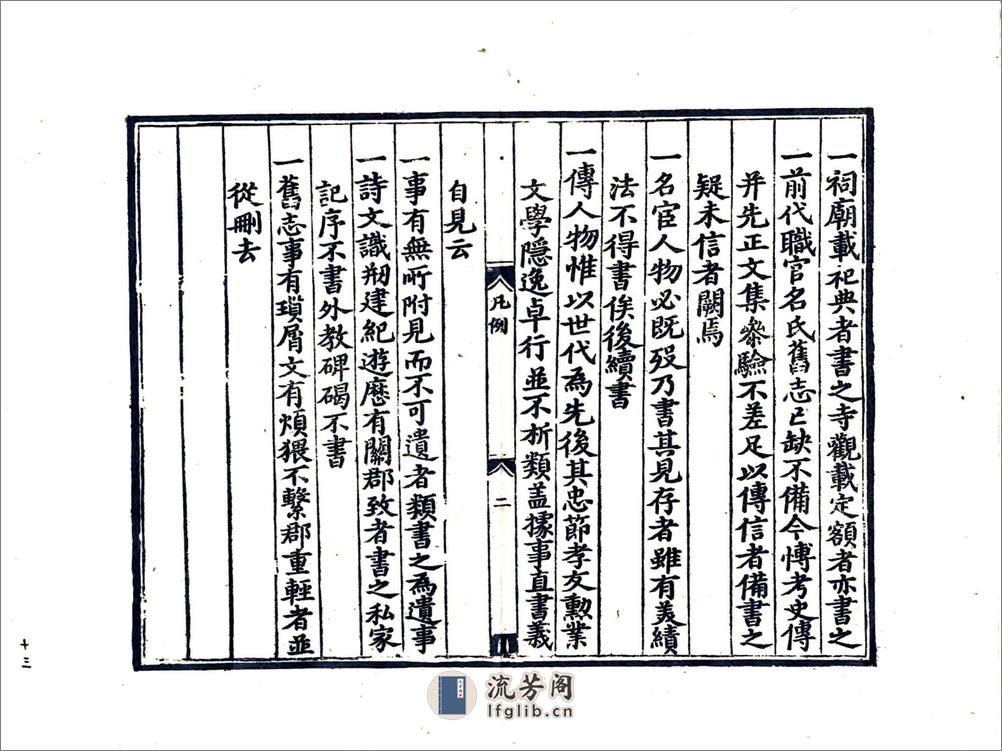 一祠廟載祀典者書之寺觀載定額者亦書之
一前代職官名氏舊志已缺不備今愽考史傳
并先正文集叅驗不差足以傳信者備書之
疑未信者闕焉
一名宦人物必既歿乃書其見存者雖有美績
法不得書俟後續書
一傳人物惟以世代為先後其忠節孝友勲業
文學隱逸卓行並不析類盖據事直書義
凡例
二
自見云
一事有無所附見而不可遺者類書之為遺事
一詩文識剏建紀遊歷有關郡致者書之私家
記序不書外教碑碣不書
一舊志事有瑣屑文有煩猥不繫郡重輕者並
從刪去
十三
流芳阁
lfglib.cn